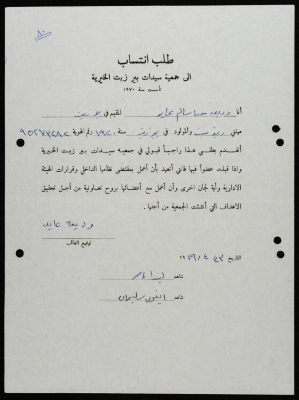 طلب انتساب
الى جمعية سيدات بير زيت الخيرية
تأسست سنة ١٩٧٠
أنا وديعه حنا سالم عايد المقيم في بيرزيت
مهنتي ربة بيت والمولود في بيرزيت سنة ١٩٢٠ رقم الهوية
أتقدم بطلبي هذا راجياً قبولي في جمعية سيدات بير زيت الخيرية
واذا قبلت عضواً فيها فاني أتعهد بأن أعمل بمقتضى نظامها الداخلي وقرارات الهيئة
الادارية وأية لجان اخرى وأن أعمل مع أعضائها بروح تعاونية من أجل تحقيق
الاهداف التي أنشئت الجمعية من أجلها .
وديعة عايد
توقيع الطالب
التاريخ
شاهد
شاهد